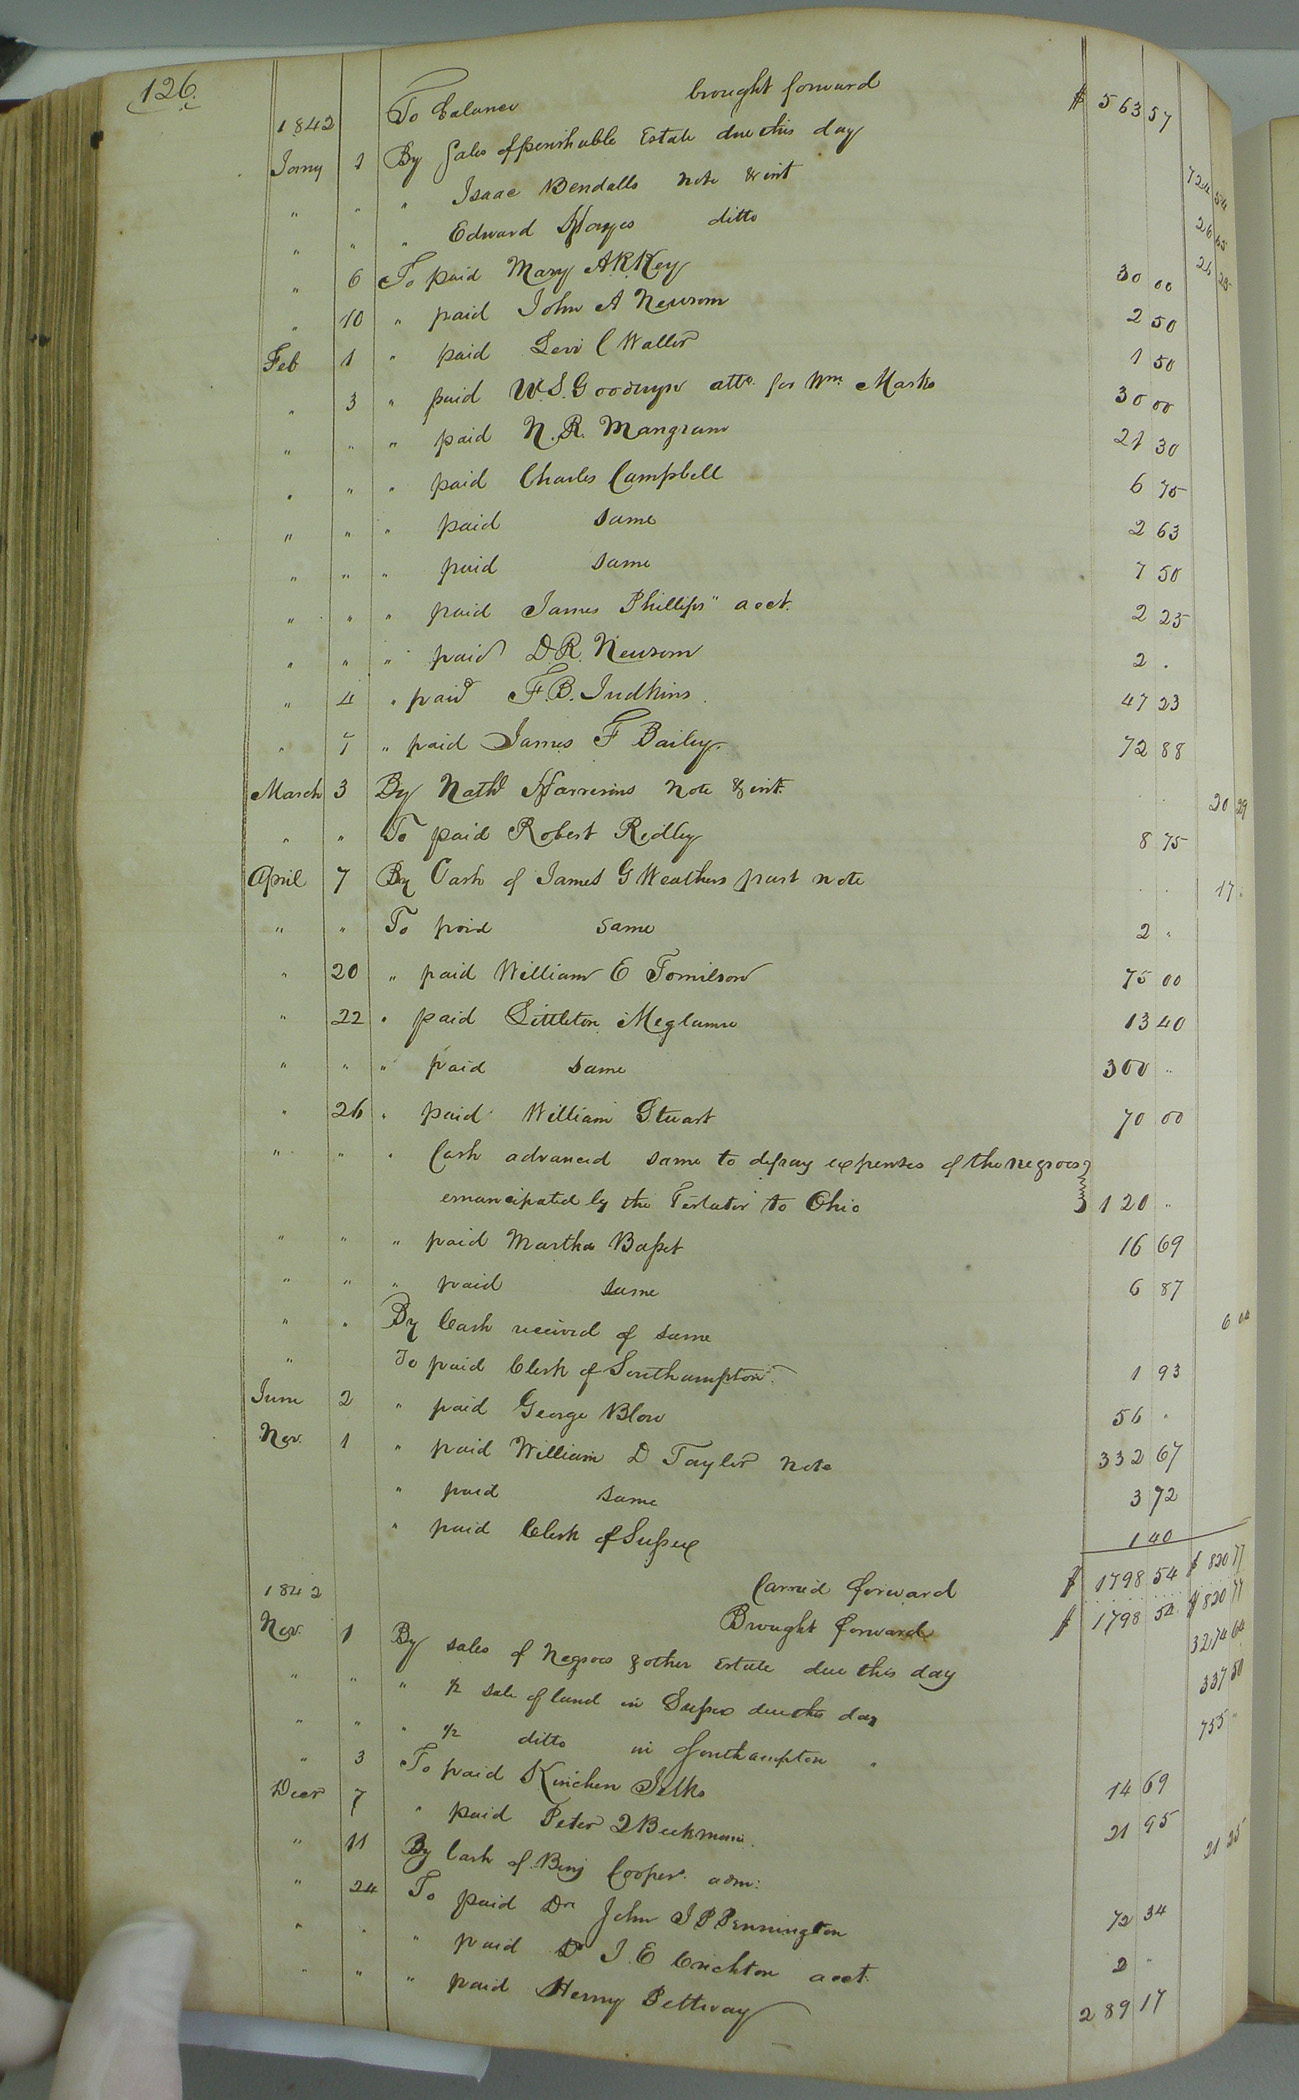 126.
To balance brought forward $ 563 57
1842
Jany 1 By Sales of perishable Estate due this day 724 54
" " " Isaac Bendalls note & int 26 65
" " " Edward Hayes ditto 26 25
" 6 To paid Mary A.R. Key 30 00
" 10 " paid John A Newsom 2 50
Feb 1 " paid Levi C Waller 1 50
" 3 " paid W.S. Goodwyn atto. for Wm. Marks 30 00
" " " paid N. R. Mangrum 21 30
" " " paid Charles Campbell 6 75
" " " paid same 2 63
" " " paid same 7 50
" " " paid James Phillips" acct. 2 25
" " " paid D.R. Newsom 2 .
" 4 " paid F.B. Judkins 47 23
" 7 " paid James F Bailey 72 88
March 3 By Nathl Harrisons note & int. 20 29
" " To paid Robert Ridley 8 75
April 7 By Cash of James G Weathers part note 17 .
" " To paid same 2 "
" 20 " paid William E Tomlinson 75 00
" 22 " paid Littleton Meglamre 13 40
" " " paid same 300 "
" 26 " paid William Stuart 70 00
" " " Cash advanced same to defray expenses of the negroes
emancipated by the Testator to Ohio 120 "
" " " paid Martha Basset 16 69
" " " paid same 6 87
" " By Cash received of same 6 04
" To paid Clerk of Southampton 1 93
June 2 " paid George Blow 56 "
Nov. 1 " paid William D Taylor note 332 67
" paid same 3 72
" paid Clerk of Sussex 1 40
Carried forward $ 1798 54 $ 820 77
1842 Brought forward $ 1798 54 $ 820 77
Nov. 1 By sales of Negroes & other Estate due this day 3274 64
" " " 1/2 sale of land in Sussex due this day 337 50
" " " 1/2 ditto in Southampton " 755 "
" 3 To paid Kinchen Jelks 14 69
Decr 7 " paid Peter Z Beekman 21 95
" 11 By Cash of Benj Cooper adm: 21 25
" 24 To paid Dr John J P Pennington 72 34
" " " paid Dr J. E Crichton acct. 2 "
" " " paid Henry Pettway 289 17